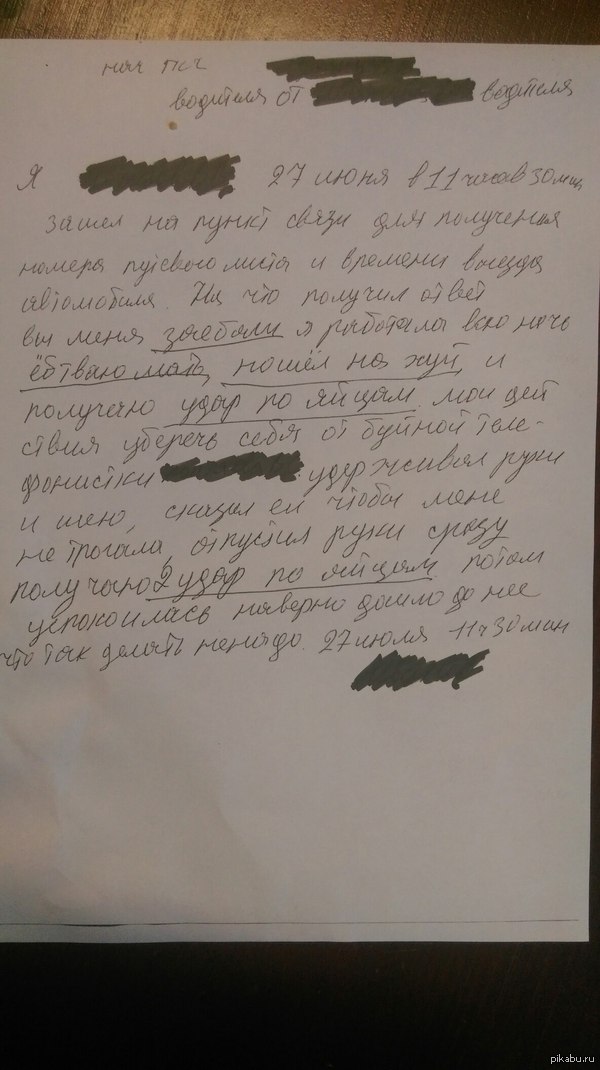 нач псч
водителя от водителя
Я 27 июня в 11 часов 30 мин
зашел на пункт связи для получения
номера путевого листа и времени выезда
автомобиля. На что получил ответ
вы меня заебали я работала всю ночь
ёбтваю мать, пошёл на хуй и
получаю удар по яйцам. мои дей
ствия уберечь себя от буйной теле-
фонистки удерживал руки
и шею, сказал ей чтобы меня
не трогала, отпустил руки сразу
получаю 2 удар по яйцам. потом
успокоилась наверно дошло до нее
что так делать ненадо. 27 июля 11ч 30 мин
pikabu.ru